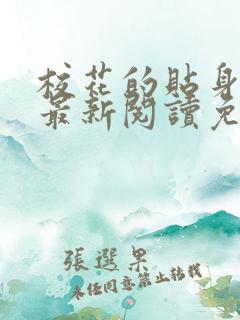 校花的貼身
最新閱讀免
張選果
未经同意禁止转载